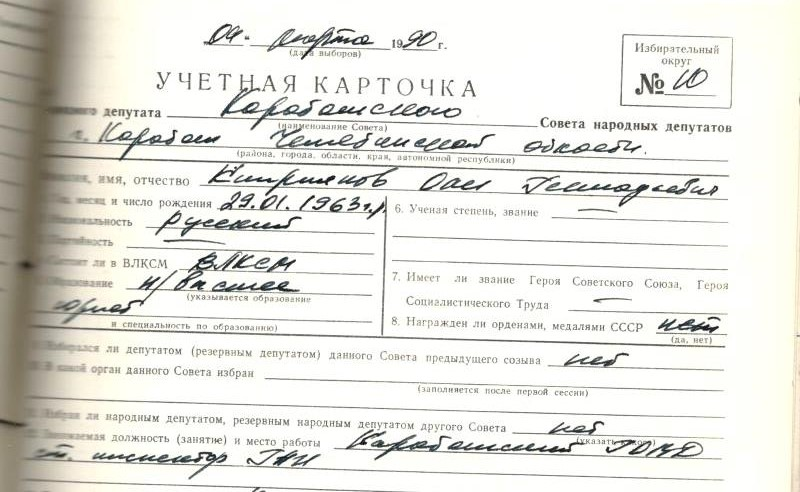 "04" марта 1990 г.
(дата выборов)
Избирательный
округ
№ 10
УЧЕТНАЯ КАРТОЧКА
депутата Карабашского Совета народных депутатов
(наименование Совета)
г. Карабаш Челябинской области.
(района, города, области, края, автономной республики)
имя, отчество Киприянов Олег Геннадьевич
месяц и число рождения 29.01.1963 г.р.
Национальность русский
Партийность —
Состоит ли в ВЛКСМ ВЛКСМ
Образование н/высшее
(указывается образование
юрист
и специальность по образованию)
6. Ученая степень, звание —
7. Имеет ли звание Героя Советского Союза, Героя
Социалистического Труда —
8. Награжден ли орденами, медалями СССР нет
(да, нет)
Избирался ли депутатом (резервным депутатом) данного Совета предыдущего созыва нет
В какой орган данного Совета избран
(заполняется после первой сессии)
Избран ли народным депутатом, резервным народным депутатом другого Совета нет
(указать какого)
Занимаемая должность (занятие) и место работы Карабашский ГОВД
ст. инспектор ГАИ